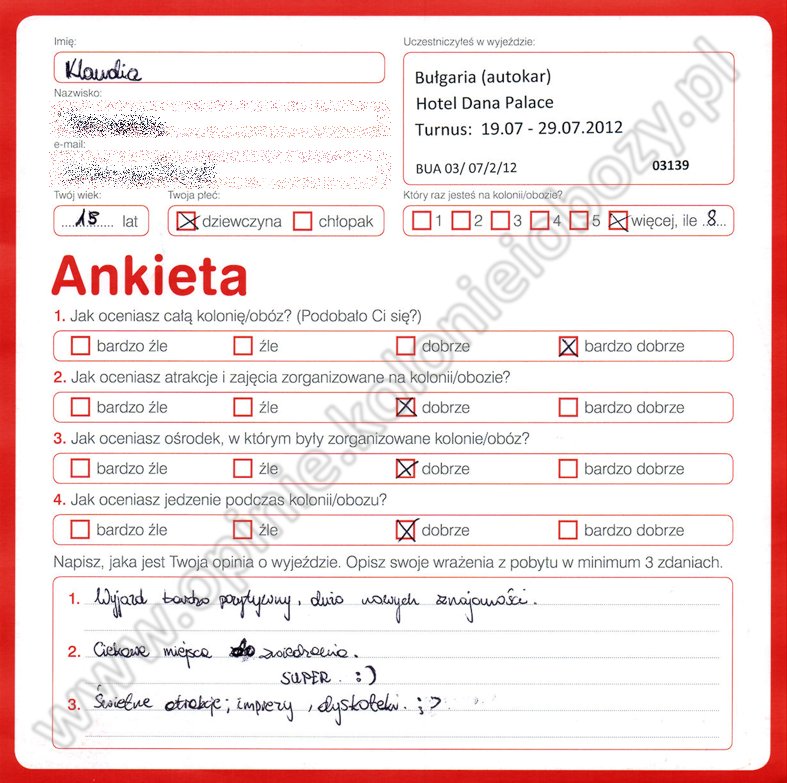 Imię:
Klaudia
Uczestniczyłeś w wyjeździe:
Bułgaria (autokar)
Hotel Dana Palace
Turnus: 19.07 - 29.07.2012
BUA 03/ 07/2/12 03139
Nazwisko:
e-mail:
Twój wiek:
lat
Twoja płeć:
dziewczyna chłopak
Który raz jesteś na kolonii/obozie?
1 2 3 4 5 więcej, ile 8
Ankieta
1. Jak oceniasz całą kolonię/obóz? (Podobało Ci się?)
bardzo źle źle dobrze bardzo dobrze
2. Jak oceniasz atrakcje i zajęcia zorganizowane na kolonii/obozie?
bardzo źle źle dobrze bardzo dobrze
3. Jak oceniasz ośrodek, w którym były zorganizowane kolonie/obóz?
bardzo źle źle dobrze bardzo dobrze
4. Jak oceniasz jedzenie podczas kolonii/obozu?
bardzo źle źle dobrze bardzo dobrze
Napisz, jaka jest Twoja opinia o wyjeździe. Opisz swoje wrażenia z pobytu w minimum 3 zdaniach.
1. Wyjazd bardzo pozytywny, dużo nowych znajomości.
2. Ciekawe miejsca do zwiedzania.
SUPER. :)
3. Świetne atrakcje; imprezy, dyskoteki. ;>
www.opinie.kolonieiobozy.pl